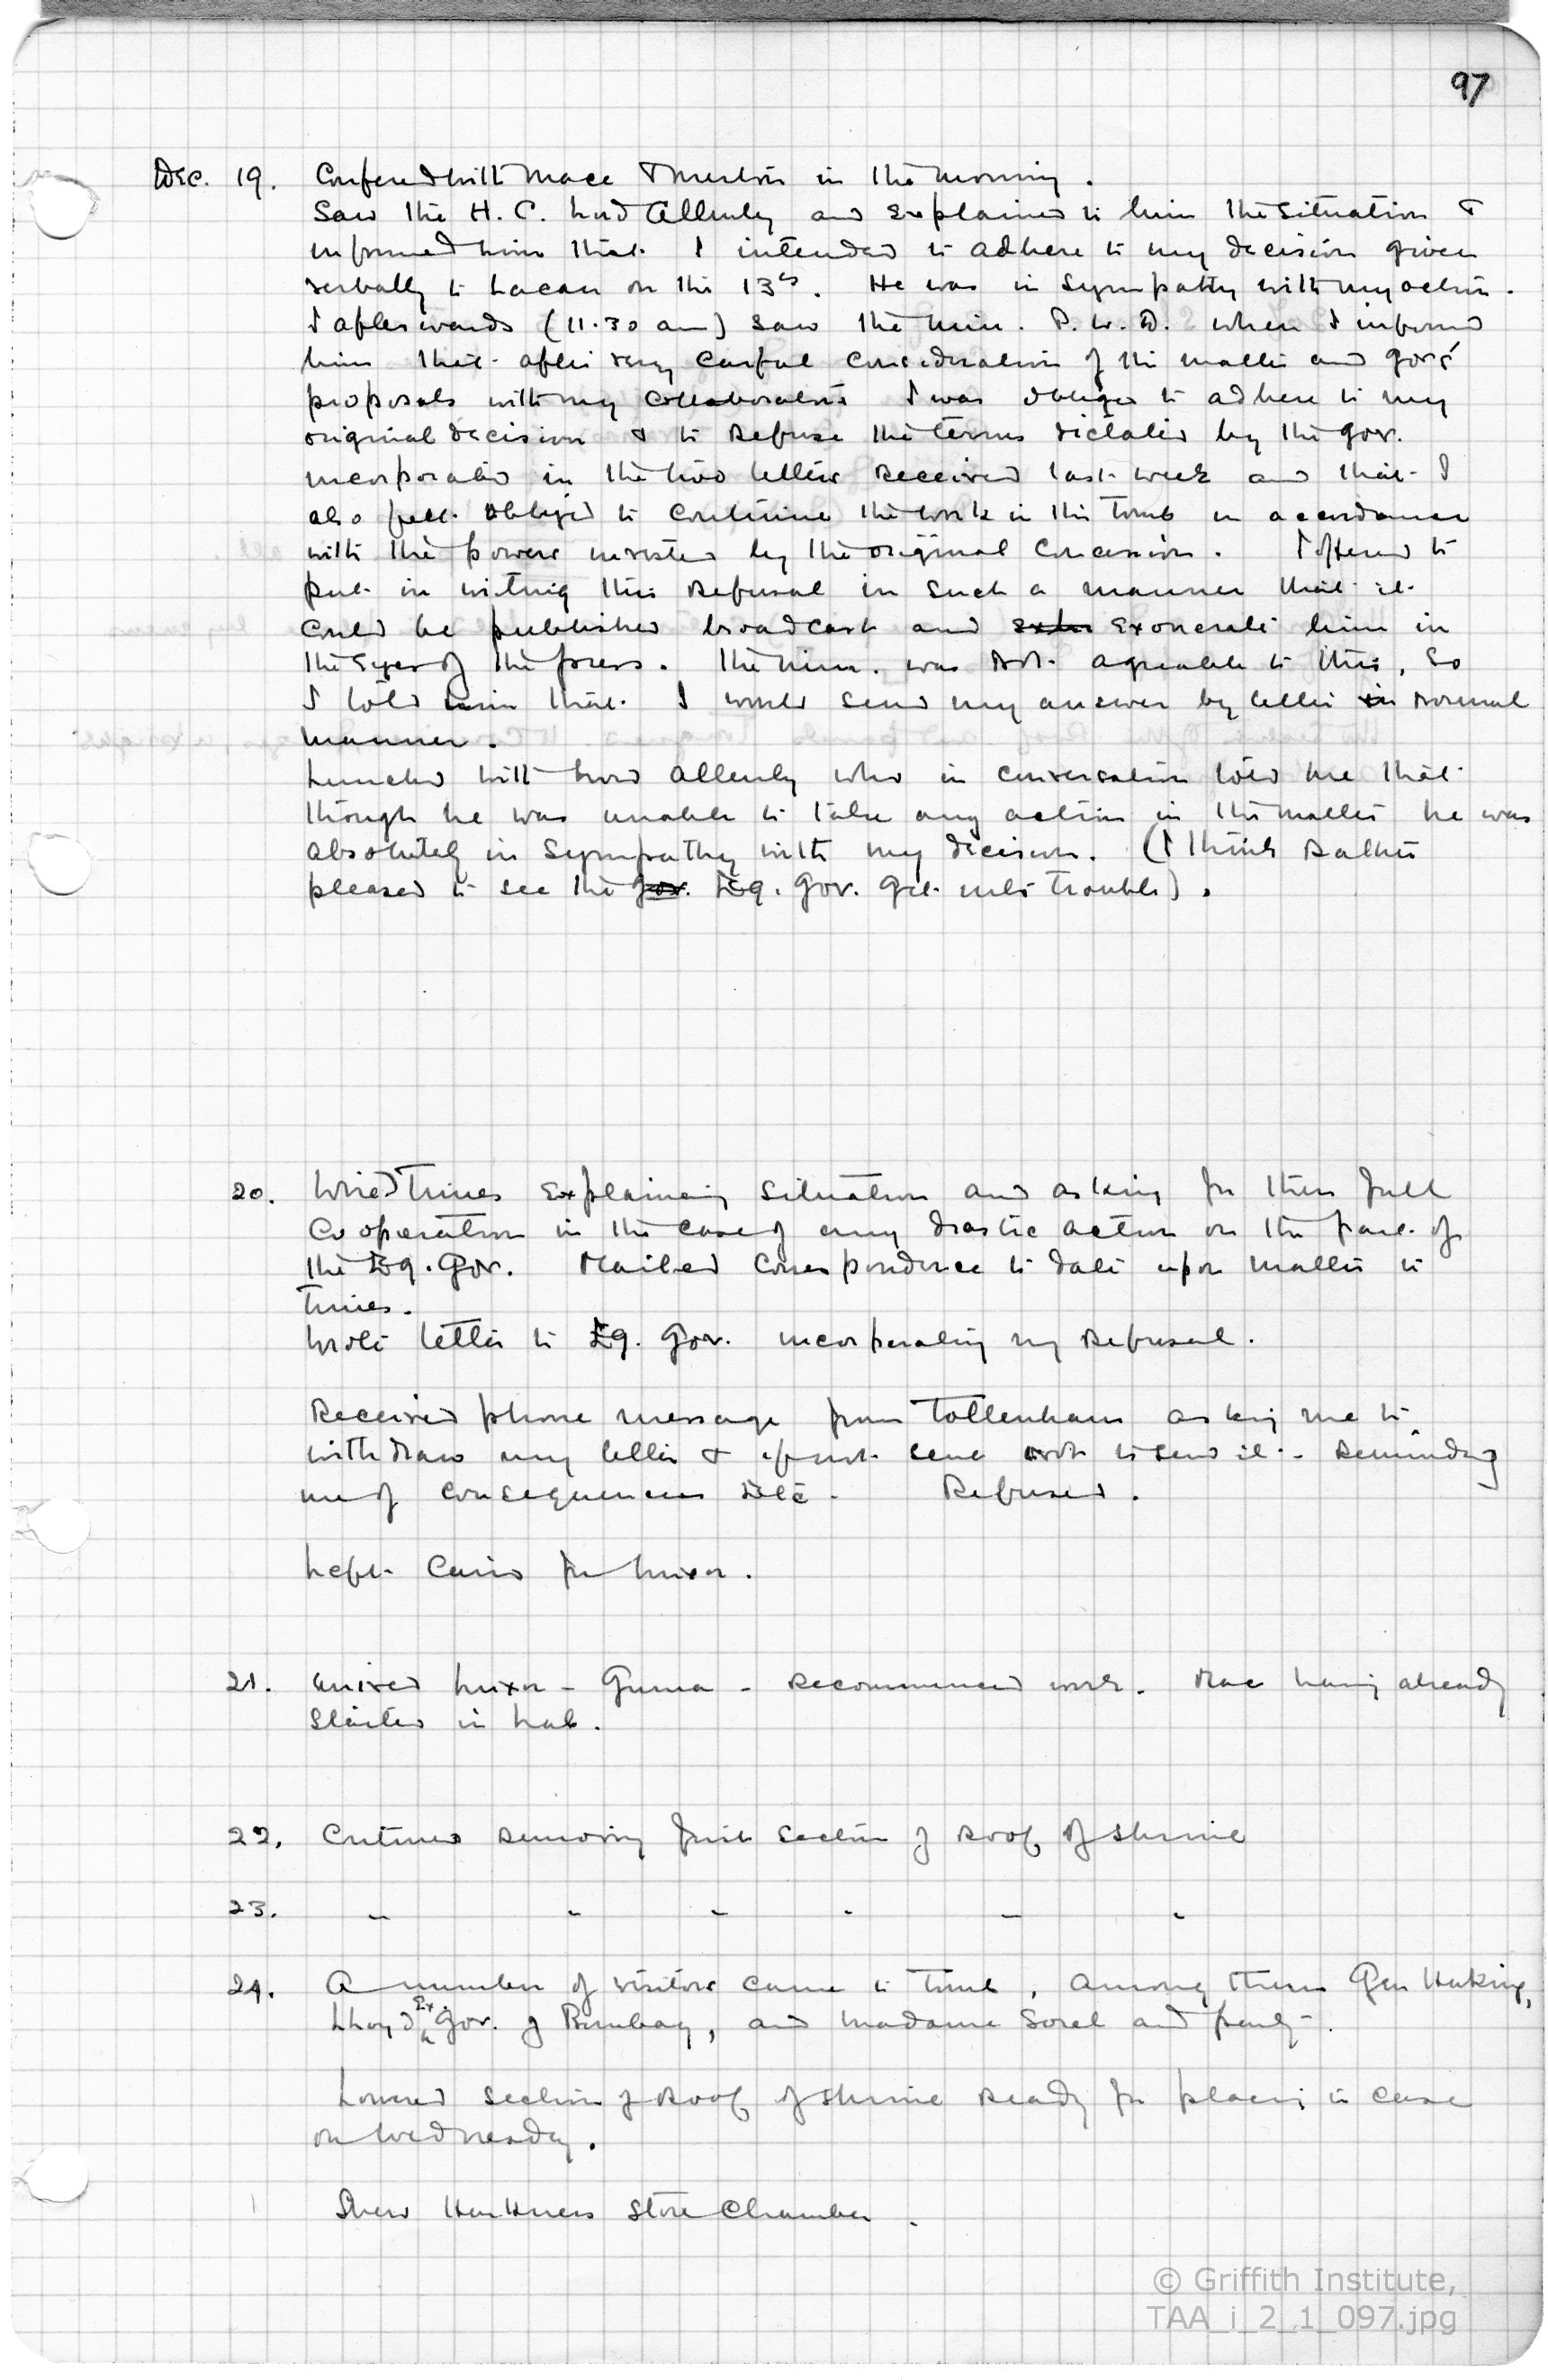 97
Dec. 19. Confered with Mace & Merton in the morning.
Saw the H. C. Lord Allenby and explained to him the situation &
informed him that I intended to adhere to my decision given
verbally to Lacau on the 13th. He was in sympathy with my action.
I afterwards (11.30 am) saw the Min. P. W. D. when I informed
him that after very careful consideration of the matter and Gov's
proposals with my collaborators I was obliged to adhere to my
original decision & to refuse the terms dictated by the Gov.
incorporated in the two letters received last week and that I
also felt obliged to continue the work in the tomb in accordance
with the powers invested by the original concession. I offered to
put in writing this refusal in such a manner that it
could be published broadcast and exonerate him in
the eyes of the press. The Min. was not agreable to this, so
I told him that I would send my answer by letter in normal
manner.
Lunched with Lord Allenby who in conversation told me that
though he was unable to take any action in the matter he was
absolutely in sympathy with my decision. (I think rather
pleased to see the Gov. Eg. Gov. get into trouble).
20. Wired Times explaining situation and asking for their full
Cooperation in the case of any drastic action on the part of
the Eg. Gov. Mailed correspondence to date upon matter to
Times.
Wrote letter to Eg. Gov. incorporating my refusal.
Received phone message from Tottenham asking me to
withdraw my letter & if not sent not to send it - reminding
me of consequences etc. Refused.
Left Cairo for Luxor.
21. Arrived Luxor - Gurna - recommenced work. Mace having already
started in Lab.
22. Continued removing first section of roof of shrine
23. " " " " " "
24. A number of visitors came to tomb, among them Gen Haking,
Lloyd Ex. Gov. of Bombay, and Madame Sorel and party.
Lowered section of roof of shrine ready for placing in case
on Wednesday.
Shew Harkness store chamber.
© Griffith Institute,
TAA_i_2_1_097.jpg